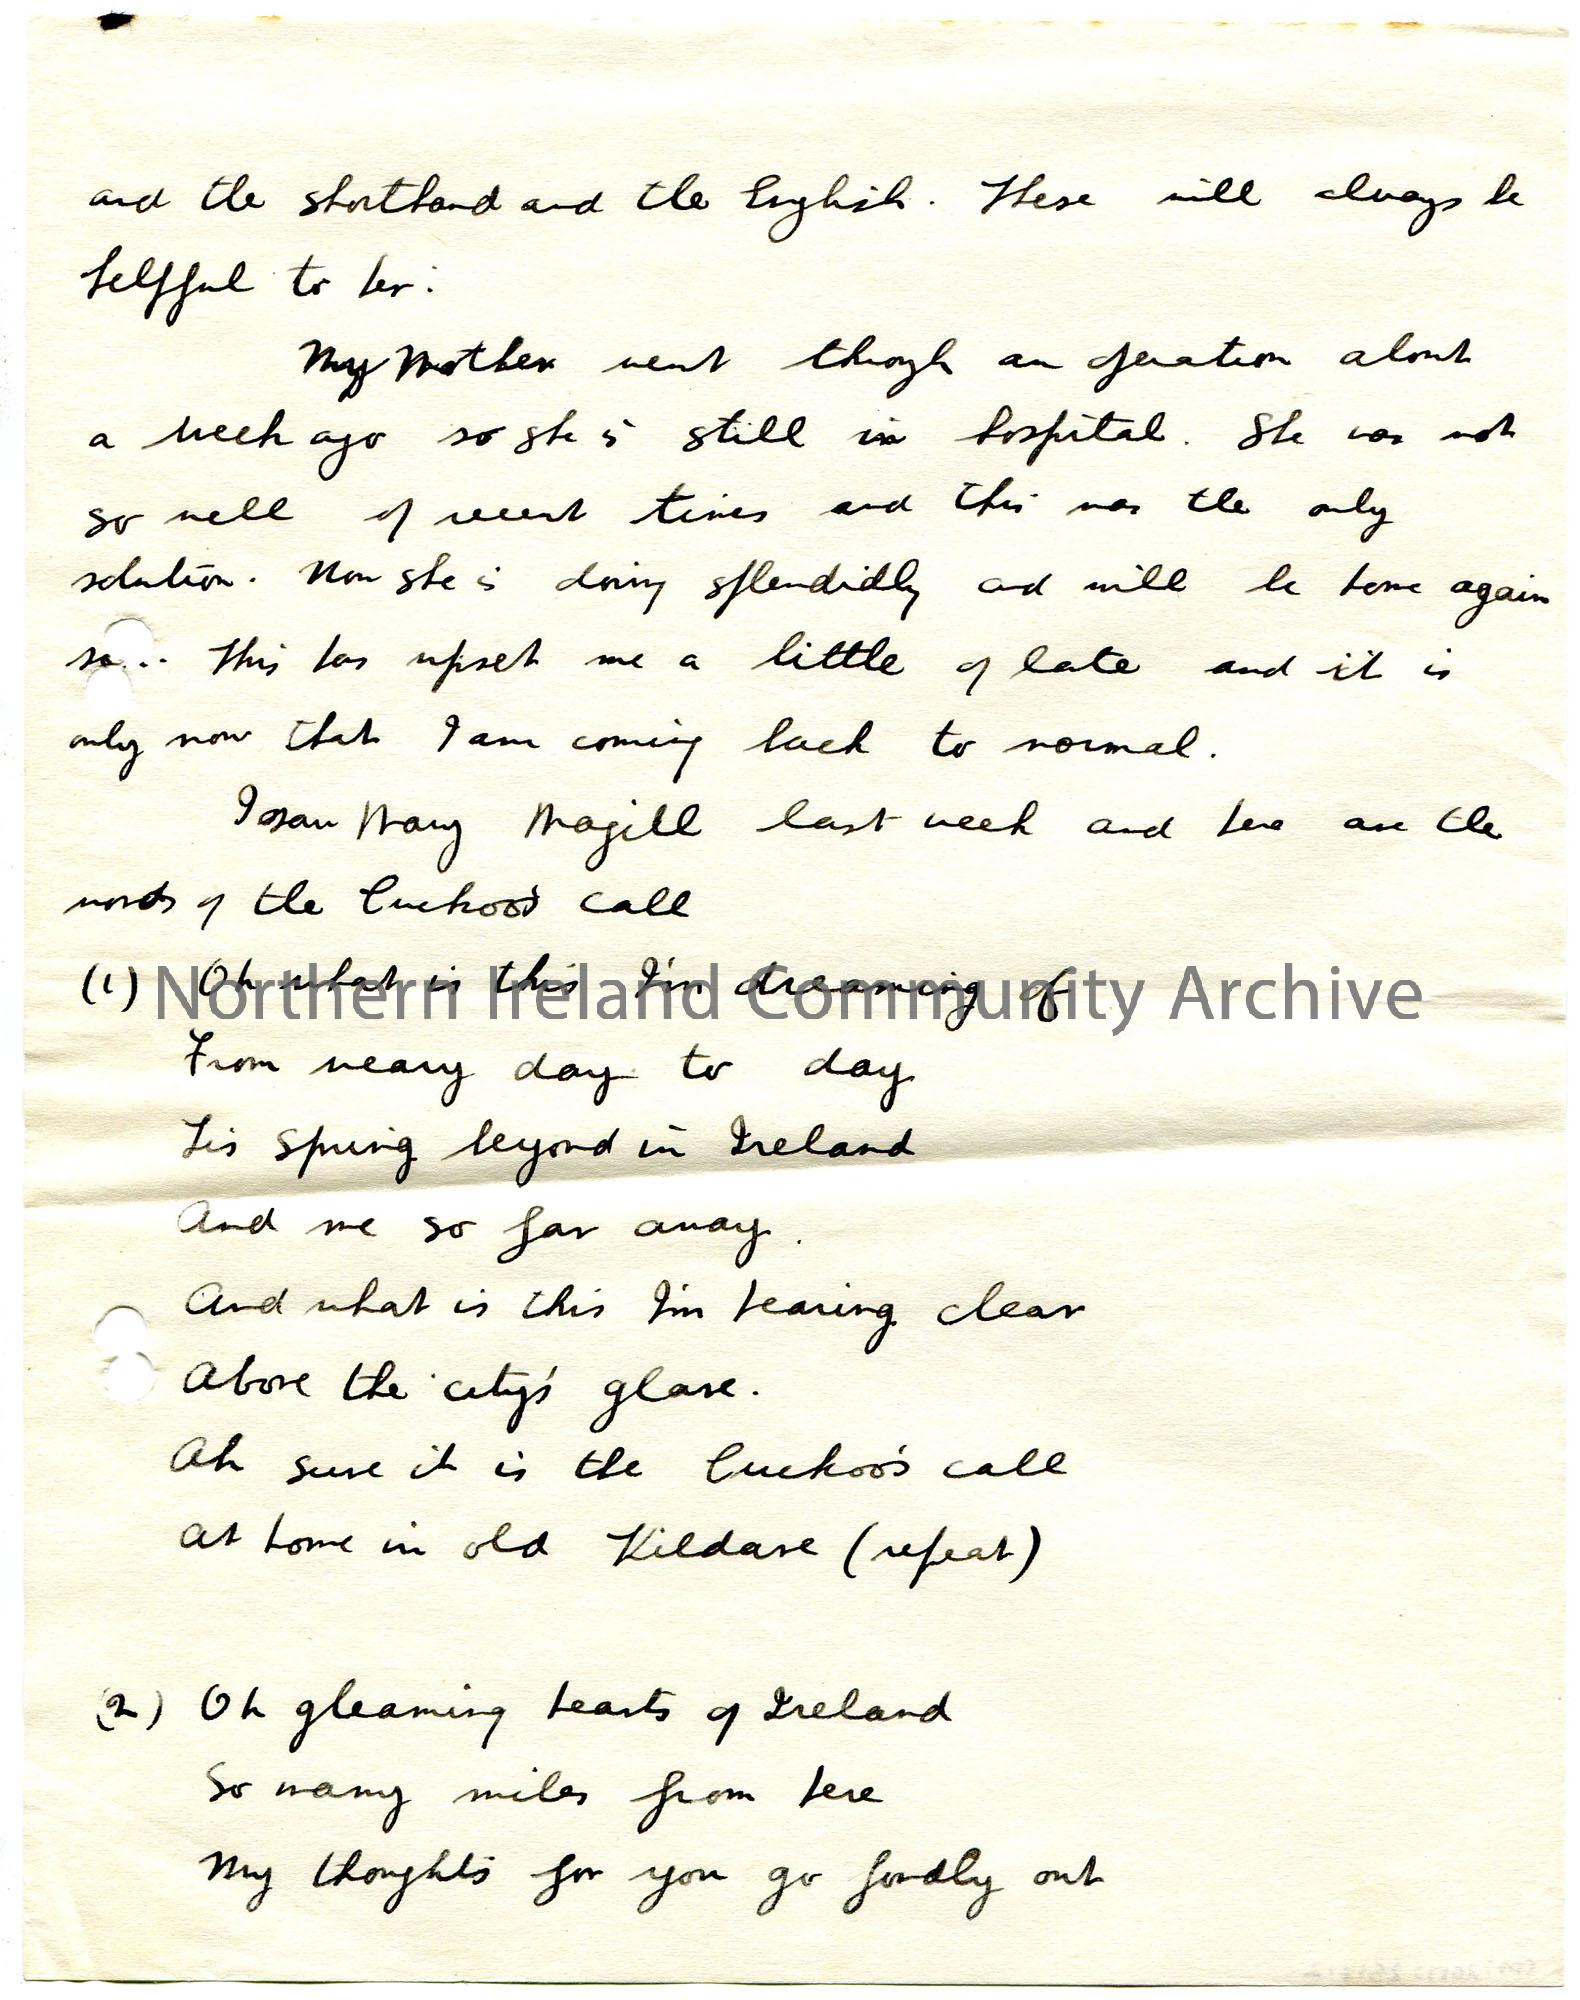 and the shorthand and the English. These will always be
helpful to her:
My Mother went through an operation about
a week ago so she is still in hospital. She was not
so well of recent times and this was the only
solution. Now she is doing splendidly and will be home again
This has upset me a little of late and it is
only now that I am coming back to normal.
I saw Mary Magill last week and here are the
words of the Cuckoo's call
(1) Oh what is this I'm dreaming of
Northern Ireland Community Archive
From weary day to day
Tis Spring beyond in Ireland
And me so far away.
And what is this I'm hearing clear
Above the city's glare.
Ah sure it is the Cuckoo's call
At home in old Kildare (repeat)
(2) Oh gleaming hearts of Ireland
So many miles from here
My thoughts for you go fondly out